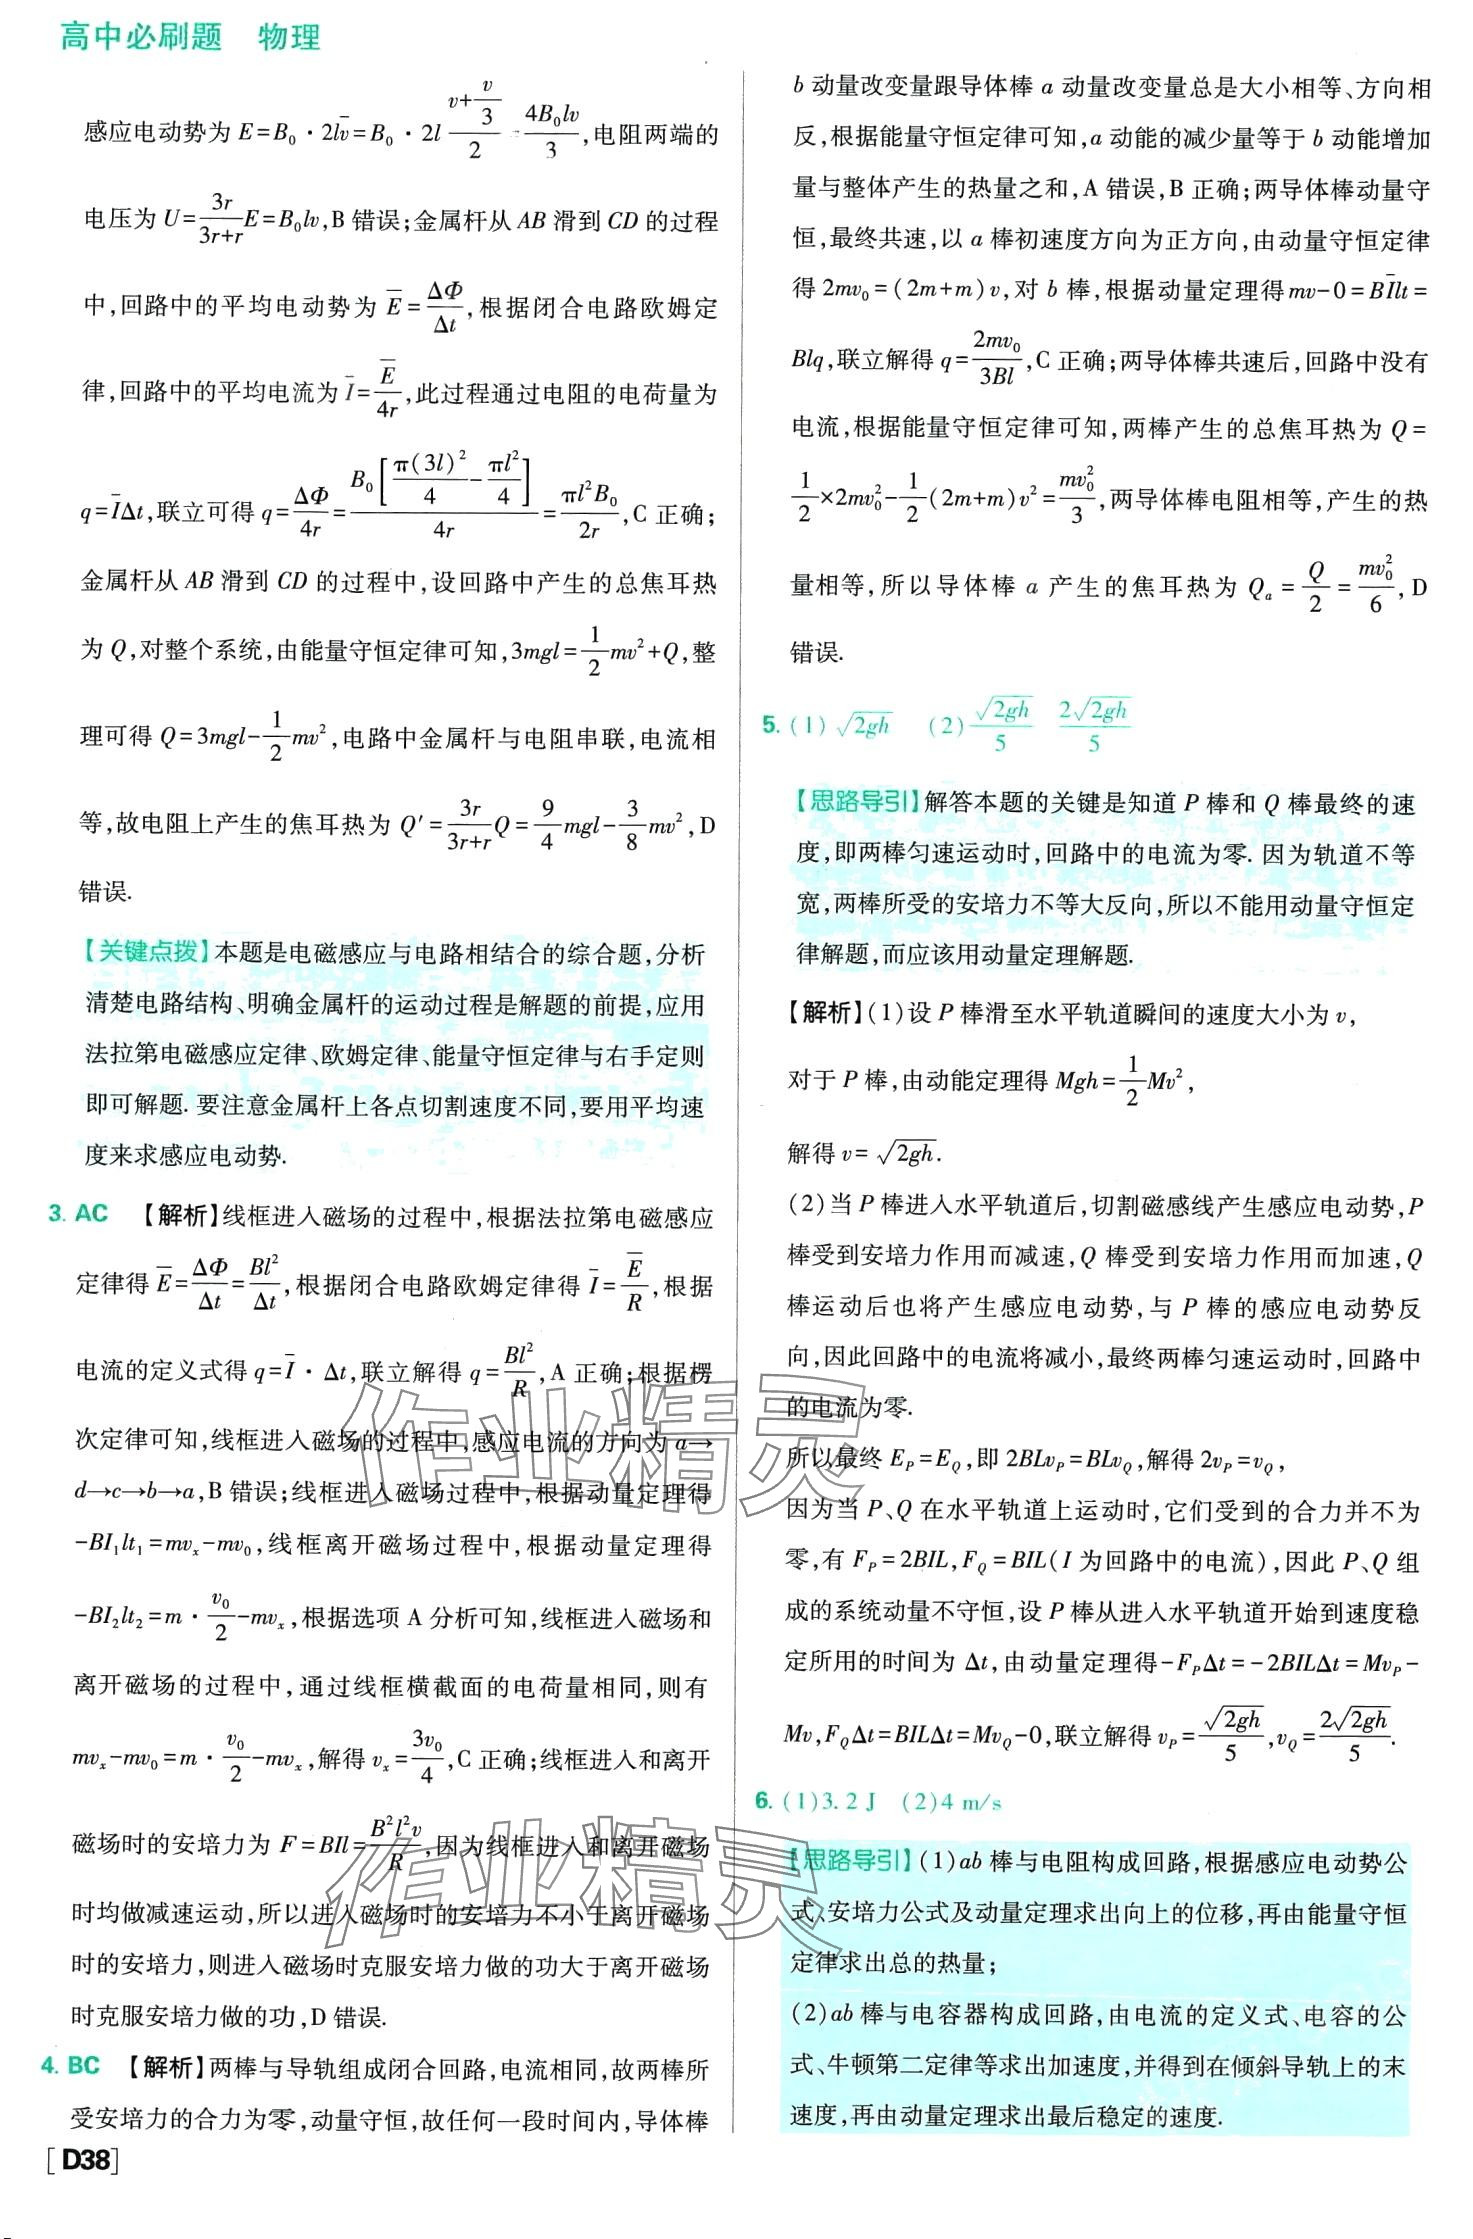 高中必刷题 物理
感应电动势为 E=B₀·2lv̄=B₀·2l (v+v/3)/2=4B₀lv/3,电阻两端的
电压为 U=3r/(3r+r)E=B₀lv,B 错误;金属杆从 AB 滑到 CD 的过程
中,回路中的平均电动势为 Ē=ΔΦ/Δt,根据闭合电路欧姆定
律,回路中的平均电流为 Ī=Ē/4r,此过程通过电阻的电荷量为
q=ĪΔt,联立可得 q=ΔΦ/4r=B₀[π(3l)²/4-πl²/4]/4r=πl²B₀/2r,C 正确;
金属杆从 AB 滑到 CD 的过程中,设回路中产生的总焦耳热
为 Q,对整个系统,由能量守恒定律可知,3mgl=1/2mv²+Q,整
理可得 Q=3mgl-1/2mv²,电路中金属杆与电阻串联,电流相
等,故电阻上产生的焦耳热为 Q′=3r/(3r+r)Q=9/4mgl-3/8mv²,D
错误.
【关键点拨】本题是电磁感应与电路相结合的综合题,分析
清楚电路结构、明确金属杆的运动过程是解题的前提,应用
法拉第电磁感应定律、欧姆定律、能量守恒定律与右手定则
即可解题.要注意金属杆上各点切割速度不同,要用平均速
度来求感应电动势.
3. AC 【解析】线框进入磁场的过程中,根据法拉第电磁感应
定律得 Ē=ΔΦ/Δt=Bl²/Δt,根据闭合电路欧姆定律得 Ī=Ē/R,根据
电流的定义式得 q=Ī·Δt,联立解得 q=Bl²/R,A 正确;根据楞
次定律可知,线框进入磁场的过程中,感应电流的方向为 a→
d→c→b→a,B 错误;线框进入磁场过程中,根据动量定理得
-BI₁lt₁=mvₓ-mv₀,线框离开磁场过程中,根据动量定理得
-BI₂lt₂=m·v₀/2-mvₓ,根据选项 A 分析可知,线框进入磁场和
离开磁场的过程中,通过线框横截面的电荷量相同,则有
mvₓ-mv₀=m·v₀/2-mvₓ,解得 vₓ=3v₀/4,C 正确;线框进入和离开
磁场时的安培力为 F=BIl=B²l²v/R,因为线框进入和离开磁场
时均做减速运动,所以进入磁场时的安培力不小于离开磁场
时的安培力,则进入磁场时克服安培力做的功大于离开磁场
时克服安培力做的功,D 错误.
4. BC 【解析】两棒与导轨组成闭合回路,电流相同,故两棒所
受安培力的合力为零,动量守恒,故任何一段时间内,导体棒
[D38]
b 动量改变量跟导体棒 a 动量改变量总是大小相等、方向相
反,根据能量守恒定律可知,a 动能的减少量等于 b 动能增加
量与整体产生的热量之和,A 错误,B 正确;两导体棒动量守
恒,最终共速,以 a 棒初速度方向为正方向,由动量守恒定律
得 2mv₀=(2m+m)v,对 b 棒,根据动量定理得 mv-0=BĪlt=
Blq,联立解得 q=2mv₀/3Bl,C 正确;两导体棒共速后,回路中没有
电流,根据能量守恒定律可知,两棒产生的总焦耳热为 Q=
1/2×2mv₀²-1/2(2m+m)v²=mv₀²/3,两导体棒电阻相等,产生的热
量相等,所以导体棒 a 产生的焦耳热为 Qₐ=Q/2=mv₀²/6,D
错误.
5. (1)√2gh (2)√2gh/5 2√2gh/5
【思路导引】解答本题的关键是知道 P 棒和 Q 棒最终的速
度,即两棒匀速运动时,回路中的电流为零.因为轨道不等
宽,两棒所受的安培力不等大反向,所以不能用动量守恒定
律解题,而应该用动量定理解题.
【解析】(1)设 P 棒滑至水平轨道瞬间的速度大小为 v,
对于 P 棒,由动能定理得 Mgh=1/2Mv²,
解得 v=√2gh.
(2)当 P 棒进入水平轨道后,切割磁感线产生感应电动势,P
棒受到安培力作用而减速,Q 棒受到安培力作用而加速,Q
棒运动后也将产生感应电动势,与 P 棒的感应电动势反
向,因此回路中的电流将减小,最终两棒匀速运动时,回路中
的电流为零.
所以最终 E_P=E_Q,即 2BLv_P=BLv_Q,解得 2v_P=v_Q,
因为当 P、Q 在水平轨道上运动时,它们受到的合力并不为
零,有 F_P=2BIL,F_Q=BIL(I 为回路中的电流),因此 P、Q 组
成的系统动量不守恒,设 P 棒从进入水平轨道开始到速度稳
定所用的时间为 Δt,由动量定理得-F_PΔt=-2BILΔt=Mv_P-
Mv,F_QΔt=BILΔt=Mv_Q-0,联立解得 v_P=√2gh/5,v_Q=2√2gh/5.
6. (1)3.2 J (2)4 m/s
【思路导引】(1)ab 棒与电阻构成回路,根据感应电动势公
式、安培力公式及动量定理求出向上的位移,再由能量守恒
定律求出总的热量;
(2)ab 棒与电容器构成回路,由电流的定义式、电容的公
式、牛顿第二定律等求出加速度,并得到在倾斜导轨上的末
速度,再由动量定理求出最后稳定的速度.
作业精灵
作业精灵